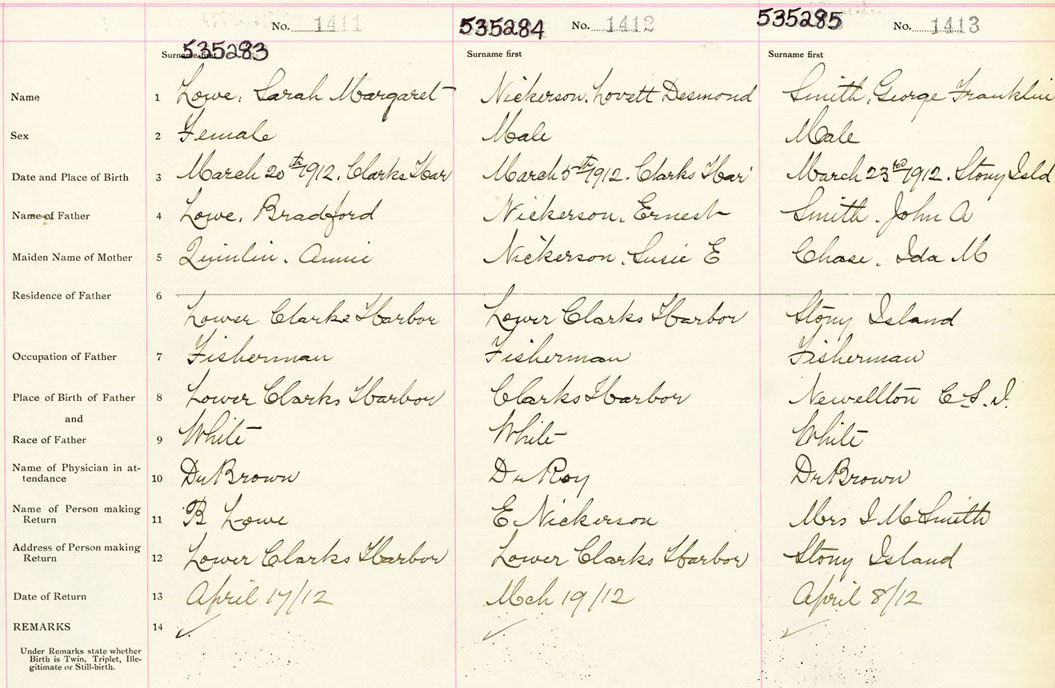 No. 1411 535284 No. 1412 535285 No. 1413
535283
Surname first Surname first Surname first
Name 1 Lowe, Sarah Margaret Nickerson, Lovett Desmond Smith, George Franklin
Sex 2 Female Male Male
Date and Place of Birth 3 March 20th 1912. Clarks Har March 5th 1912. Clarks Har March 23rd 1912. Stony Isld
Name of Father 4 Lowe, Bradford Nickerson, Ernest Smith, John A
Maiden Name of Mother 5 Quinlin, Annie Nickerson, Susie E Chase, Ida M
Residence of Father 6
Lower Clarks Harbor Lower Clarks Harbor Stony Island
Occupation of Father 7 Fisherman Fisherman Fisherman
Place of Birth of Father 8 Lower Clarks Harbor Clarks Harbor Newellton C.S.I.
and
Race of Father 9 White White White
Name of Physician in at-
tendance 10 Dr Brown Dr Roy Dr Brown
Name of Person making
Return 11 B Lowe E Nickerson Mrs I M Smith
Address of Person making
Return 12 Lower Clarks Harbor Lower Clarks Harbor Stony Island
Date of Return 13 April 17/12 Mch 19/12 April 8/12
REMARKS 14
Under Remarks state whether
Birth is Twin, Triplet, Ille-
gitimate or Still-birth.